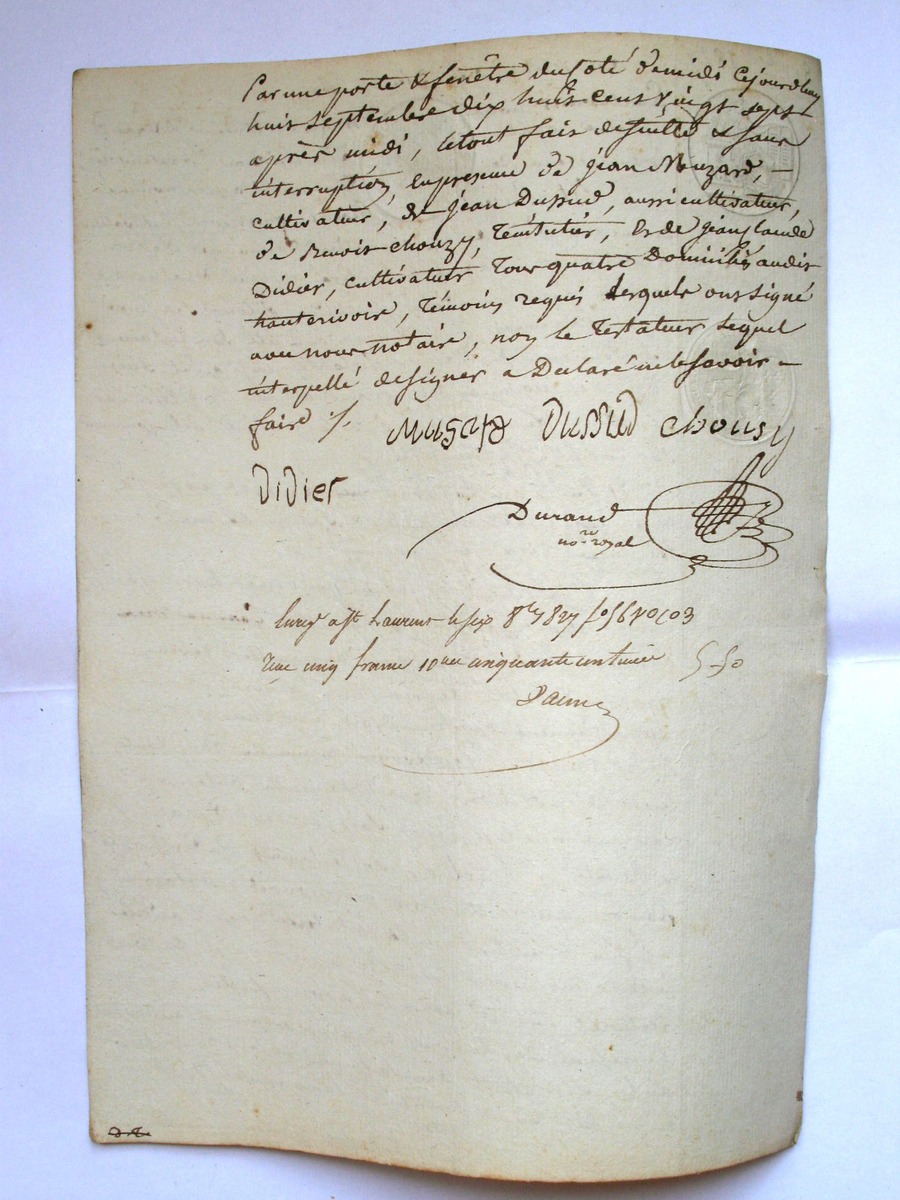 Par une porte & fenêtre du Coté de midi Cejourdhuy
huit Septembre dix huit cent vingt sept
après midi, le tout fait de suitte & sans
interruption, en presence de jean Muzard, –
cultivateur, de jean Dussud, aussi cultivateur,
de Benoit Chouzy, teinturier, & de jean Claude
Didier, cultivateur tous quatre Domiciliés audit
hauterivoire, témoins requis lesquels ont signé
avec nous notaire, non le Testateur lequel
interpellé de signer a Déclaré ne le savoir –
faire ./.
Musard Dussud chousy
Didier
Durand
nore royal
Enregé à St Laurent le six 8bre 1827 fo 56 Vo C 3
Reçu cinq francs 10me cinquante centimes 5-50